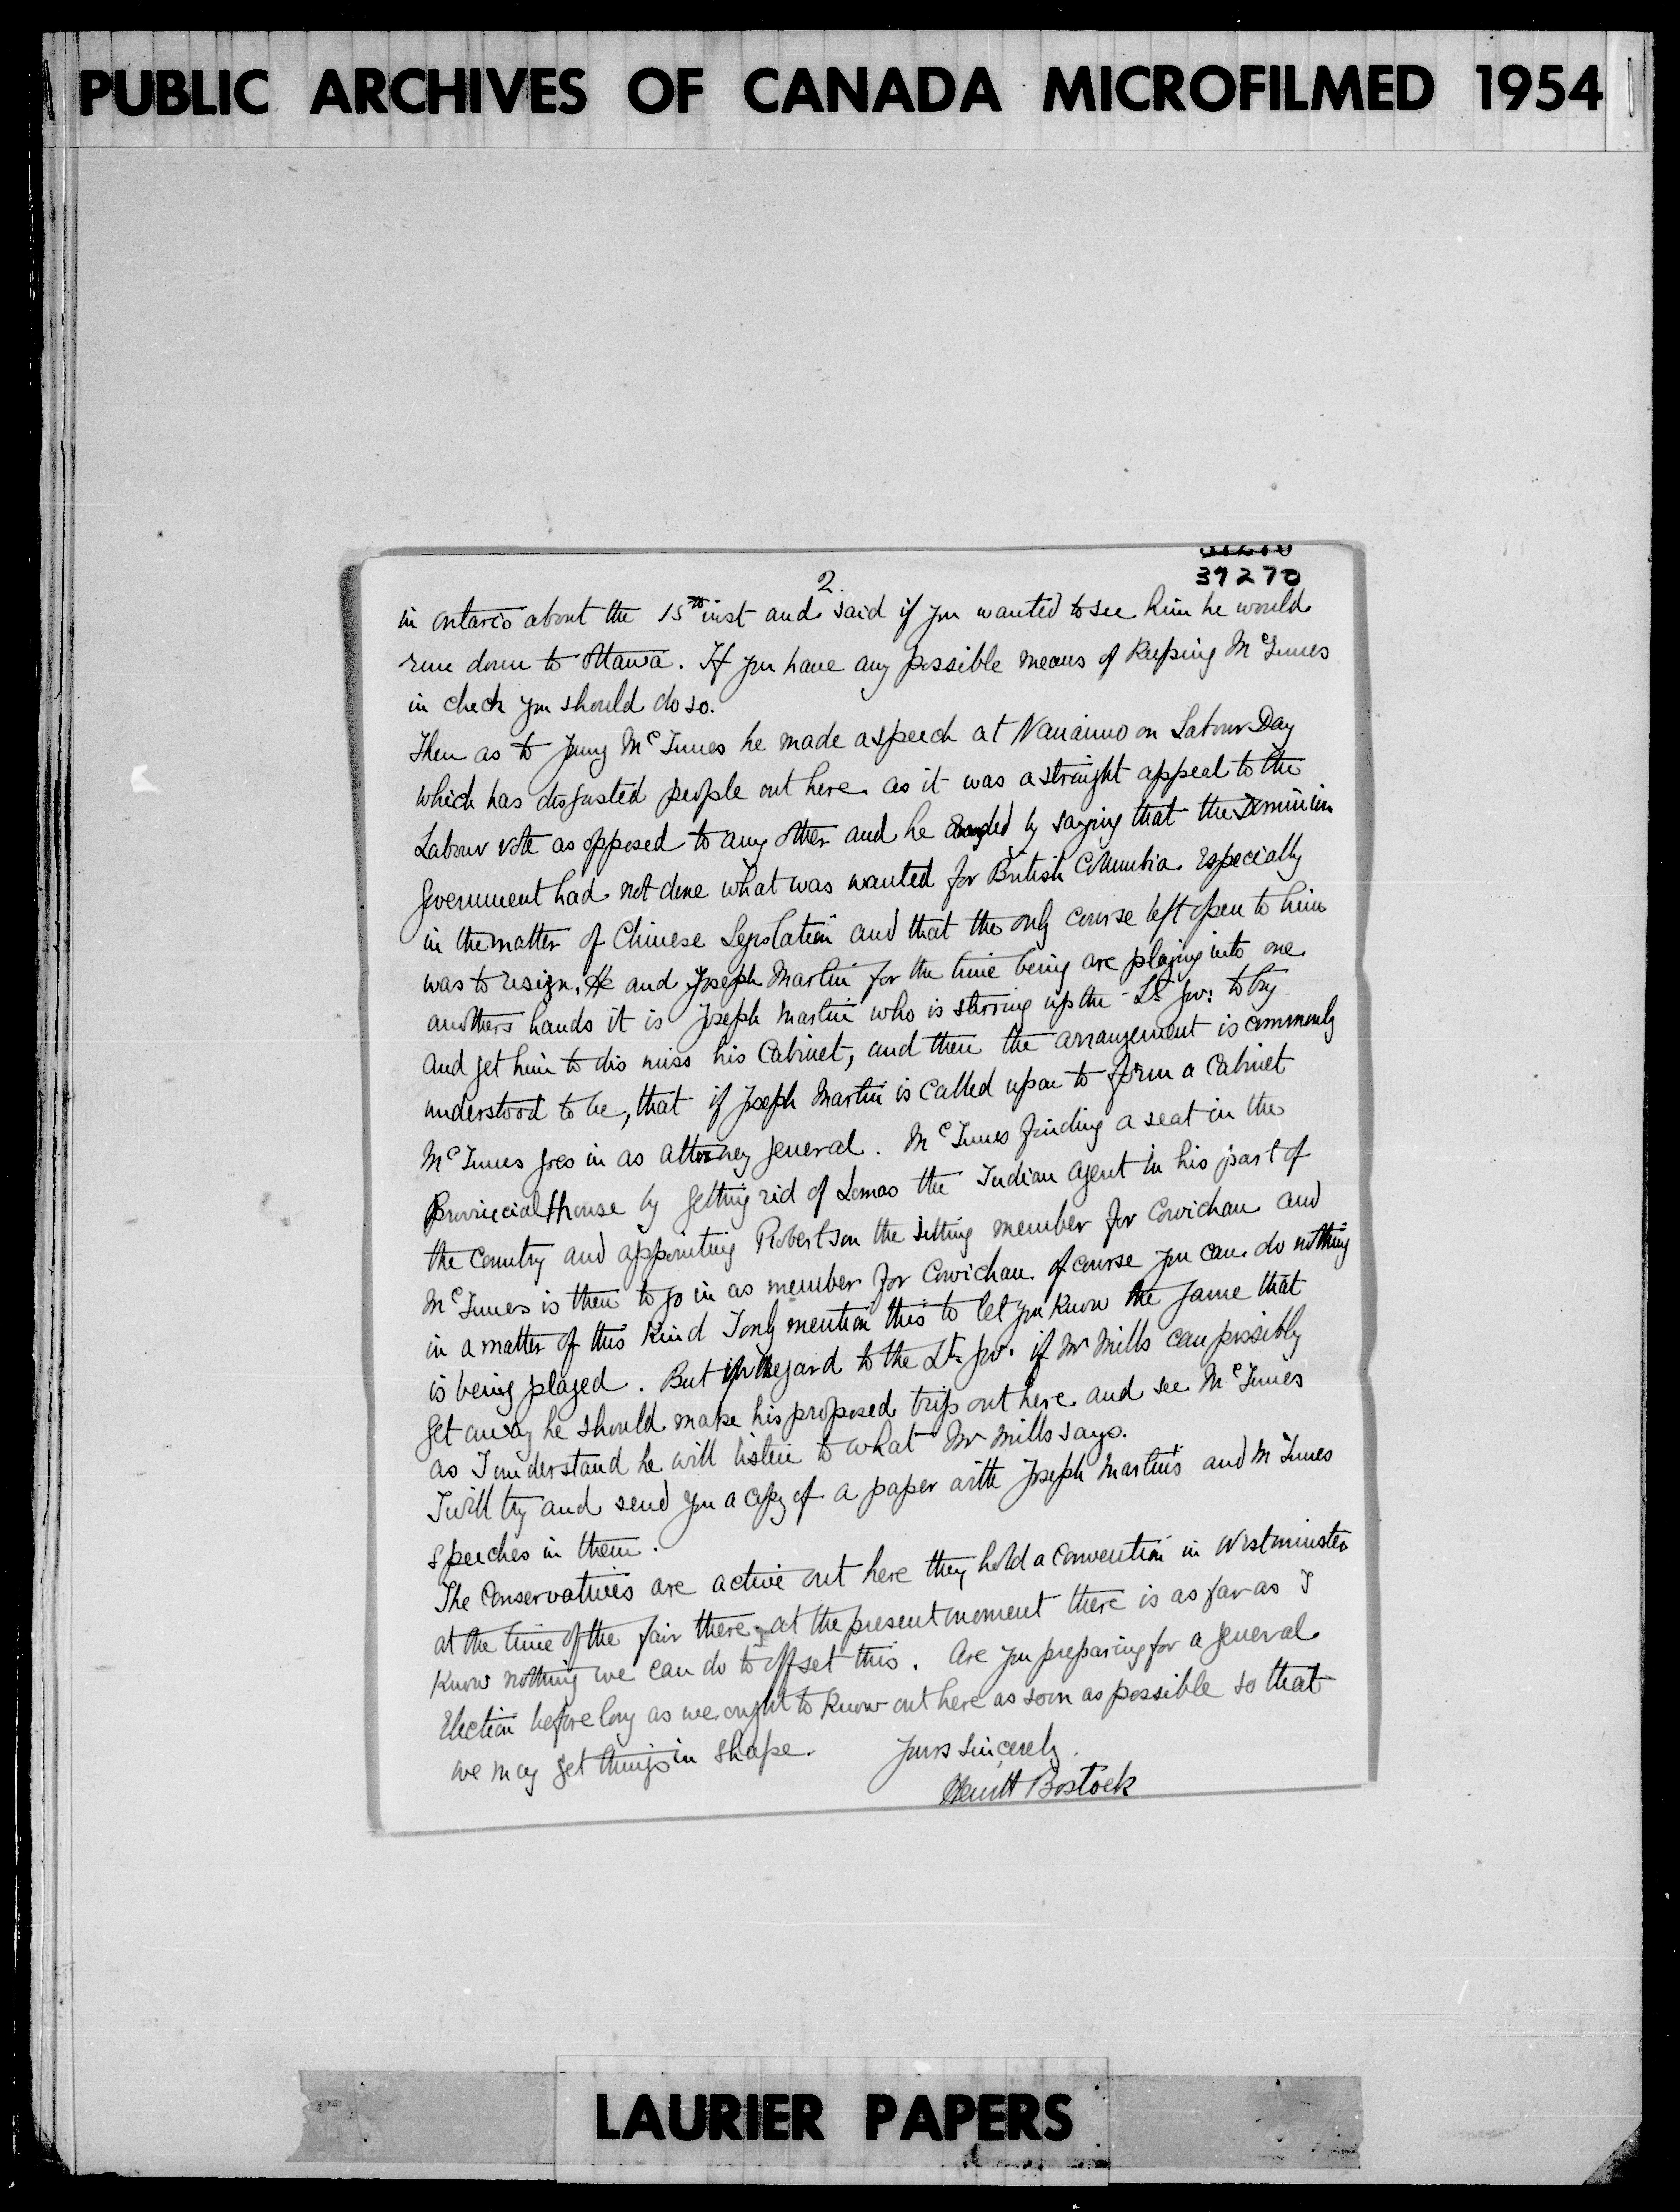 PUBLIC ARCHIVES OF CANADA MICROFILMED 1954
37270
2.
in Ontario about the 15th inst and said if you wanted to see him he would
run down to Ottawa. If you have any possible means of keeping McInnes
in check you should do so.
Then as to young McInnes he made a speech at Nanaimo on Labour Day
which has disgusted people out here as it was a straight appeal to the
Labour vote as opposed to any other and he ended by saying that the Dominion
government had not done what was wanted for British Columbia especially
in the matter of Chinese Legislation and that the only course left open to him
was to resign. He and Joseph Martin for the time being are playing into one
anothers hands it is Joseph Martin who is stirring up the Lt. Gov: to try
and get him to dis miss his Cabinet, and then the arrangement is commonly
understood to be, that if Joseph Martin is called upon to form a Cabinet
McInnes goes in as attorney general. McInnes finding a seat in the
Provincial House by getting rid of Lomas the Indian Agent in his part of
the country and appointing Robertson the sitting member for Cowichan and
McInnes is then to go in as member for Cowichan of course you can do nothing
in a matter of this kind I only mention this to let you know the game that
is being played. But in regard to the Lt. Gov. if Mr Mills can possibly
get away he should make his proposed trip out here and see McInnes
as I understand he will listen to what Mr Mills says.
I will try and send you a copy of a paper with Joseph Martin's and McInnes
speeches in them.
The Conservatives are active out here they hold a Convention in Westminster
at the time of the fair there. at the present moment there is as far as I
know nothing we can do to offset this. Are you preparing for a general
Election before long as we ought to know out here as soon as possible so that
we may get things in shape. Yours sincerely
Hewitt Bostock
LAURIER PAPERS